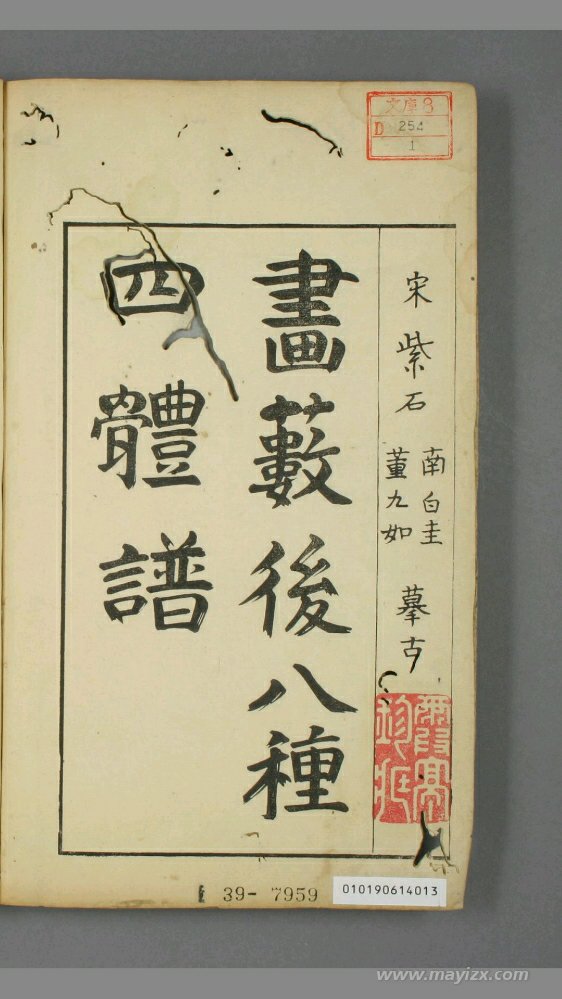 文庫8
D 254
1
宋紫石
南白圭
董九如
摹古
畫藪後八種
四體譜
39- 7959
010190614013
www.mayizx.com